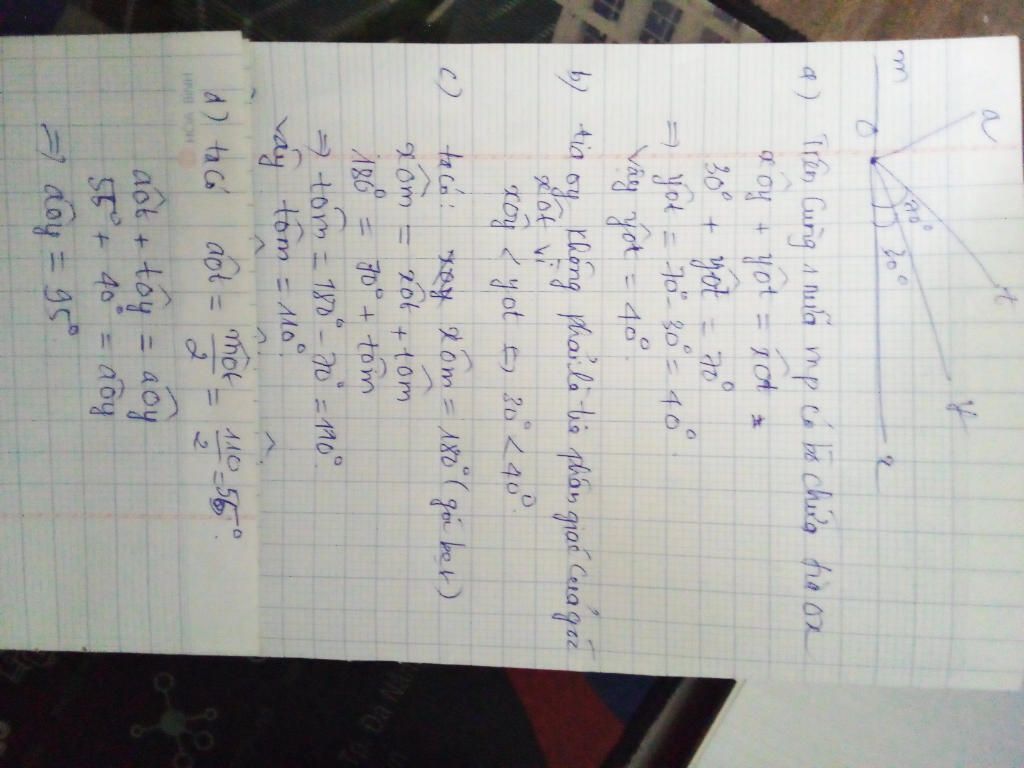 m
a
O
70°
30°
t
y
x
a) Trên cùng 1 nửa mp có bờ chứa tia ox
xôy + yôt = xôt
30° + yôt = 70°
=> yôt = 70° - 30° = 40°.
vậy yôt = 40°.
b) tia oy không phải là tia phân giác của góc
xôt vì
xôy < yot <=> 30° < 40°.
c) ta có: xôm = 180° (góc bẹt)
xôm = xôt + tôm
180° = 70° + tôm
=> tôm = 180° - 70° = 110°.
vậy tôm = 110°.
HOA BINH
d) ta có aôt = môt/2 = 110/2 = 55°.
aôt + tôy = aôy
55° + 40° = aôy
=> aôy = 95°